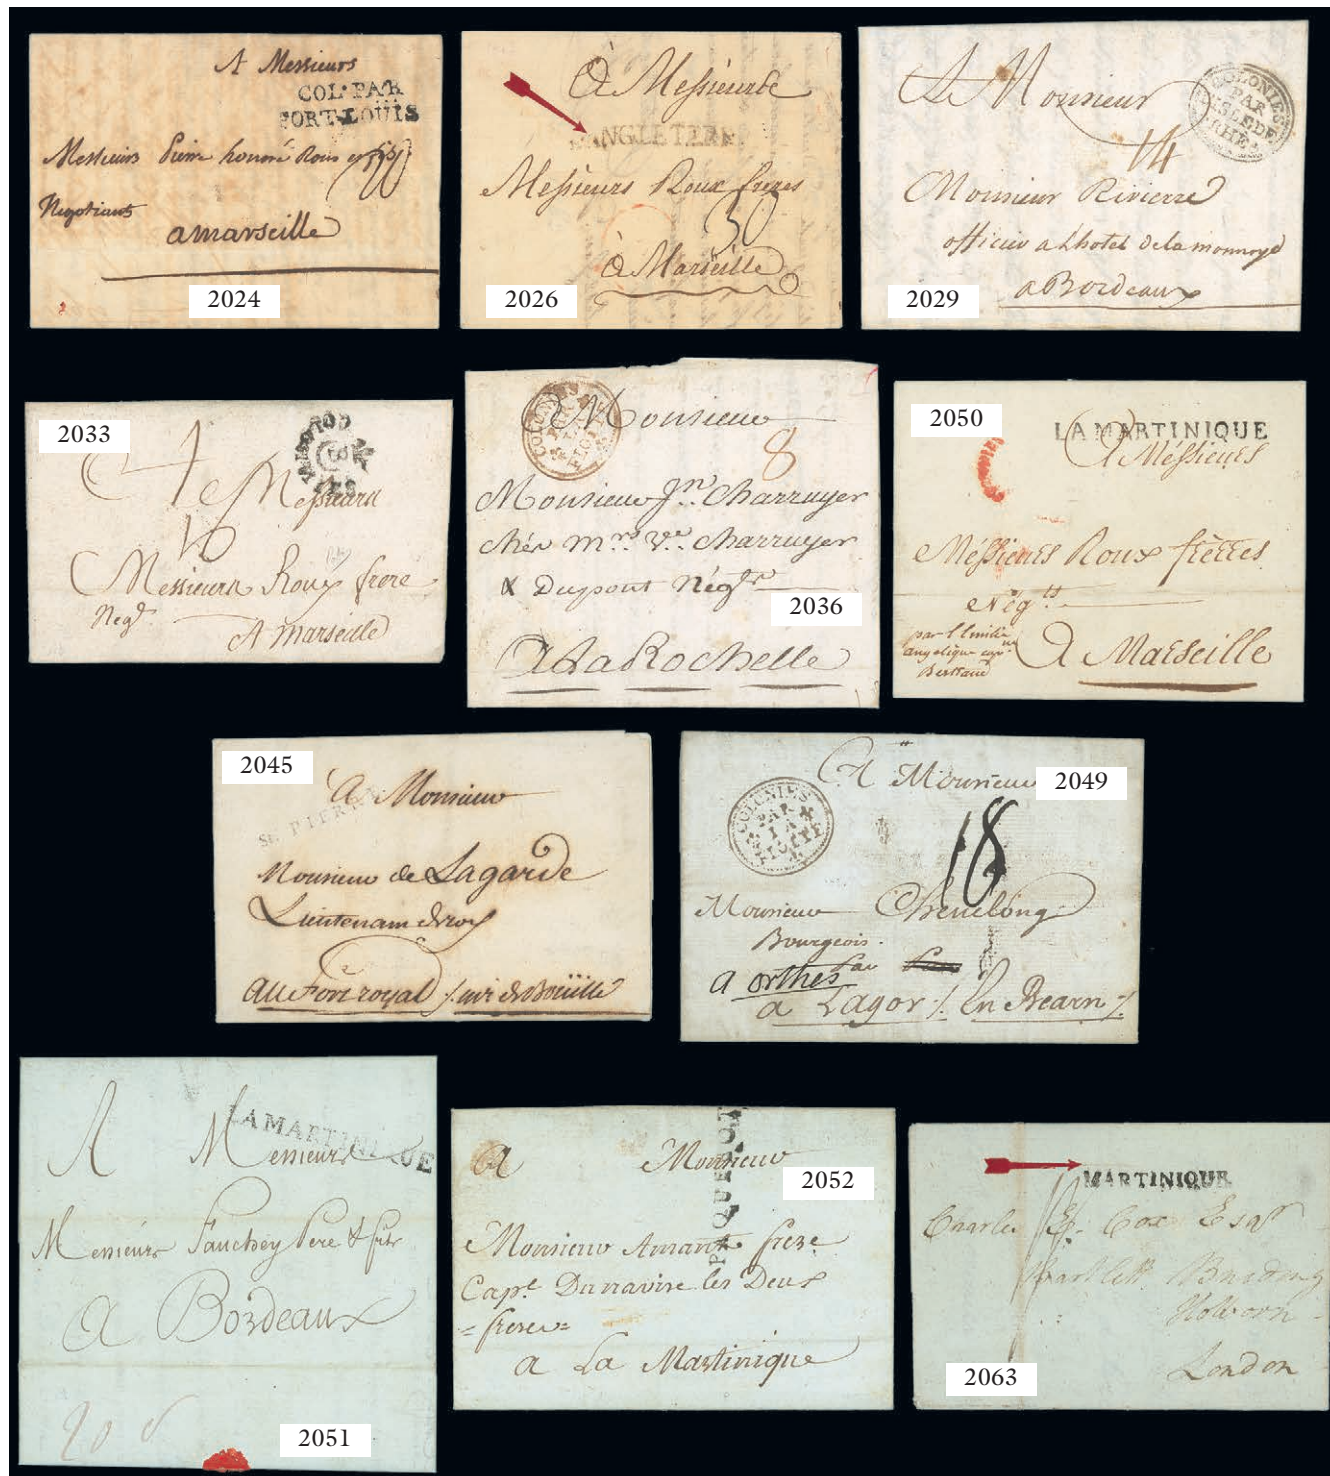 A Messieurs
COL·PAR
PORT-LOUIS
Messieurs Pierre honoré Roux
Negotiants
amarseille
2024
À Messieurs
ANGLETERRE
Messieurs Roux freres
30
à Marseille
2026
A Monsieur
COLONIES
PAR
ISLE DE
RHE
14
Monsieur Rivierre
officier a L'hotel de la monnoye
a Bordeaux
2029
2033
A Messieurs
Messieurs Roux frere
Negt
A marseille
A Monsieur
COLONIES
8
Monsieur Jn. Charruyer
chés Mrs. Ve. Charruyer
& Dupont Négts
2036
A La Rochelle
2050
LA MARTINIQUE
A Méssieurs
Méssieurs Roux frères
Négts
par
angelique
Bertrand
A Marseille
2045
A Monsieur
ST. PIERRE
Monsieur de Lagarde
Lieutenant
au Fort royal
A Monsieur
2049
COLONIES
PAR
LA
FLOTTE
18
Monsieur Chenelong
Bourgeois
a orthes
a Lagor /. En Bearn /.
LA MARTINIQUE
A Messieurs
Messieurs Fauchey Pere & fils
A Bordeaux
2051
a Monsieur
2052
PAQUEBOT
Monsieur Amant frere
Capt. Du navire les Deux
=freres=
a La Martinique
MARTINIQUE
Charles Cox Esqr
Bartlett Building
Holborn
London
2063